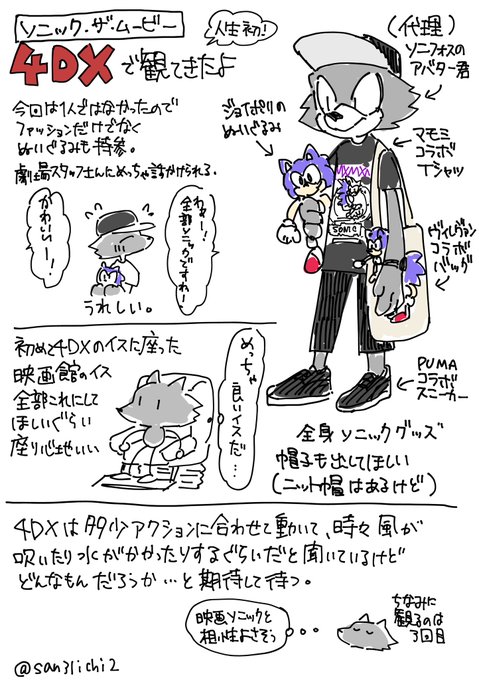 ソニック・ザ・ムービー
人生初!
4DXで観てきたよ
今回は1人ではなかったので
ファッションだけでなく
ぬいぐるみも持参。
劇場スタッフさんにめっちゃ話かけられる。
わぁー!
全部ソニックですねー!
かわいいー!
うれしい。
(代理)
ソニフォスの
アバター君
ジョイポリの
ぬいぐるみ
マモミ
コラボ
Tシャツ
MXMXM
SONIC
ヴィレヴァン
コラボ
バッグ
PUMA
コラボ
スニーカー
全身ソニックグッズ
帽子も出してほしい
(ニット帽はあるけど)
初めて4DXのイスに座った
映画館のイス
全部これにして
ほしいぐらい
座り心地いい
めっちゃ
良いイスだ…
4DXは多少アクションに合わせて動いて、時々風が
吹いたり水がかかったりするぐらいだと聞いているけど
どんなもんだろうか…と期待して待つ。
映画ソニックと
相性よさそう
ちなみに
観るのは
3回目
@san31ichi2